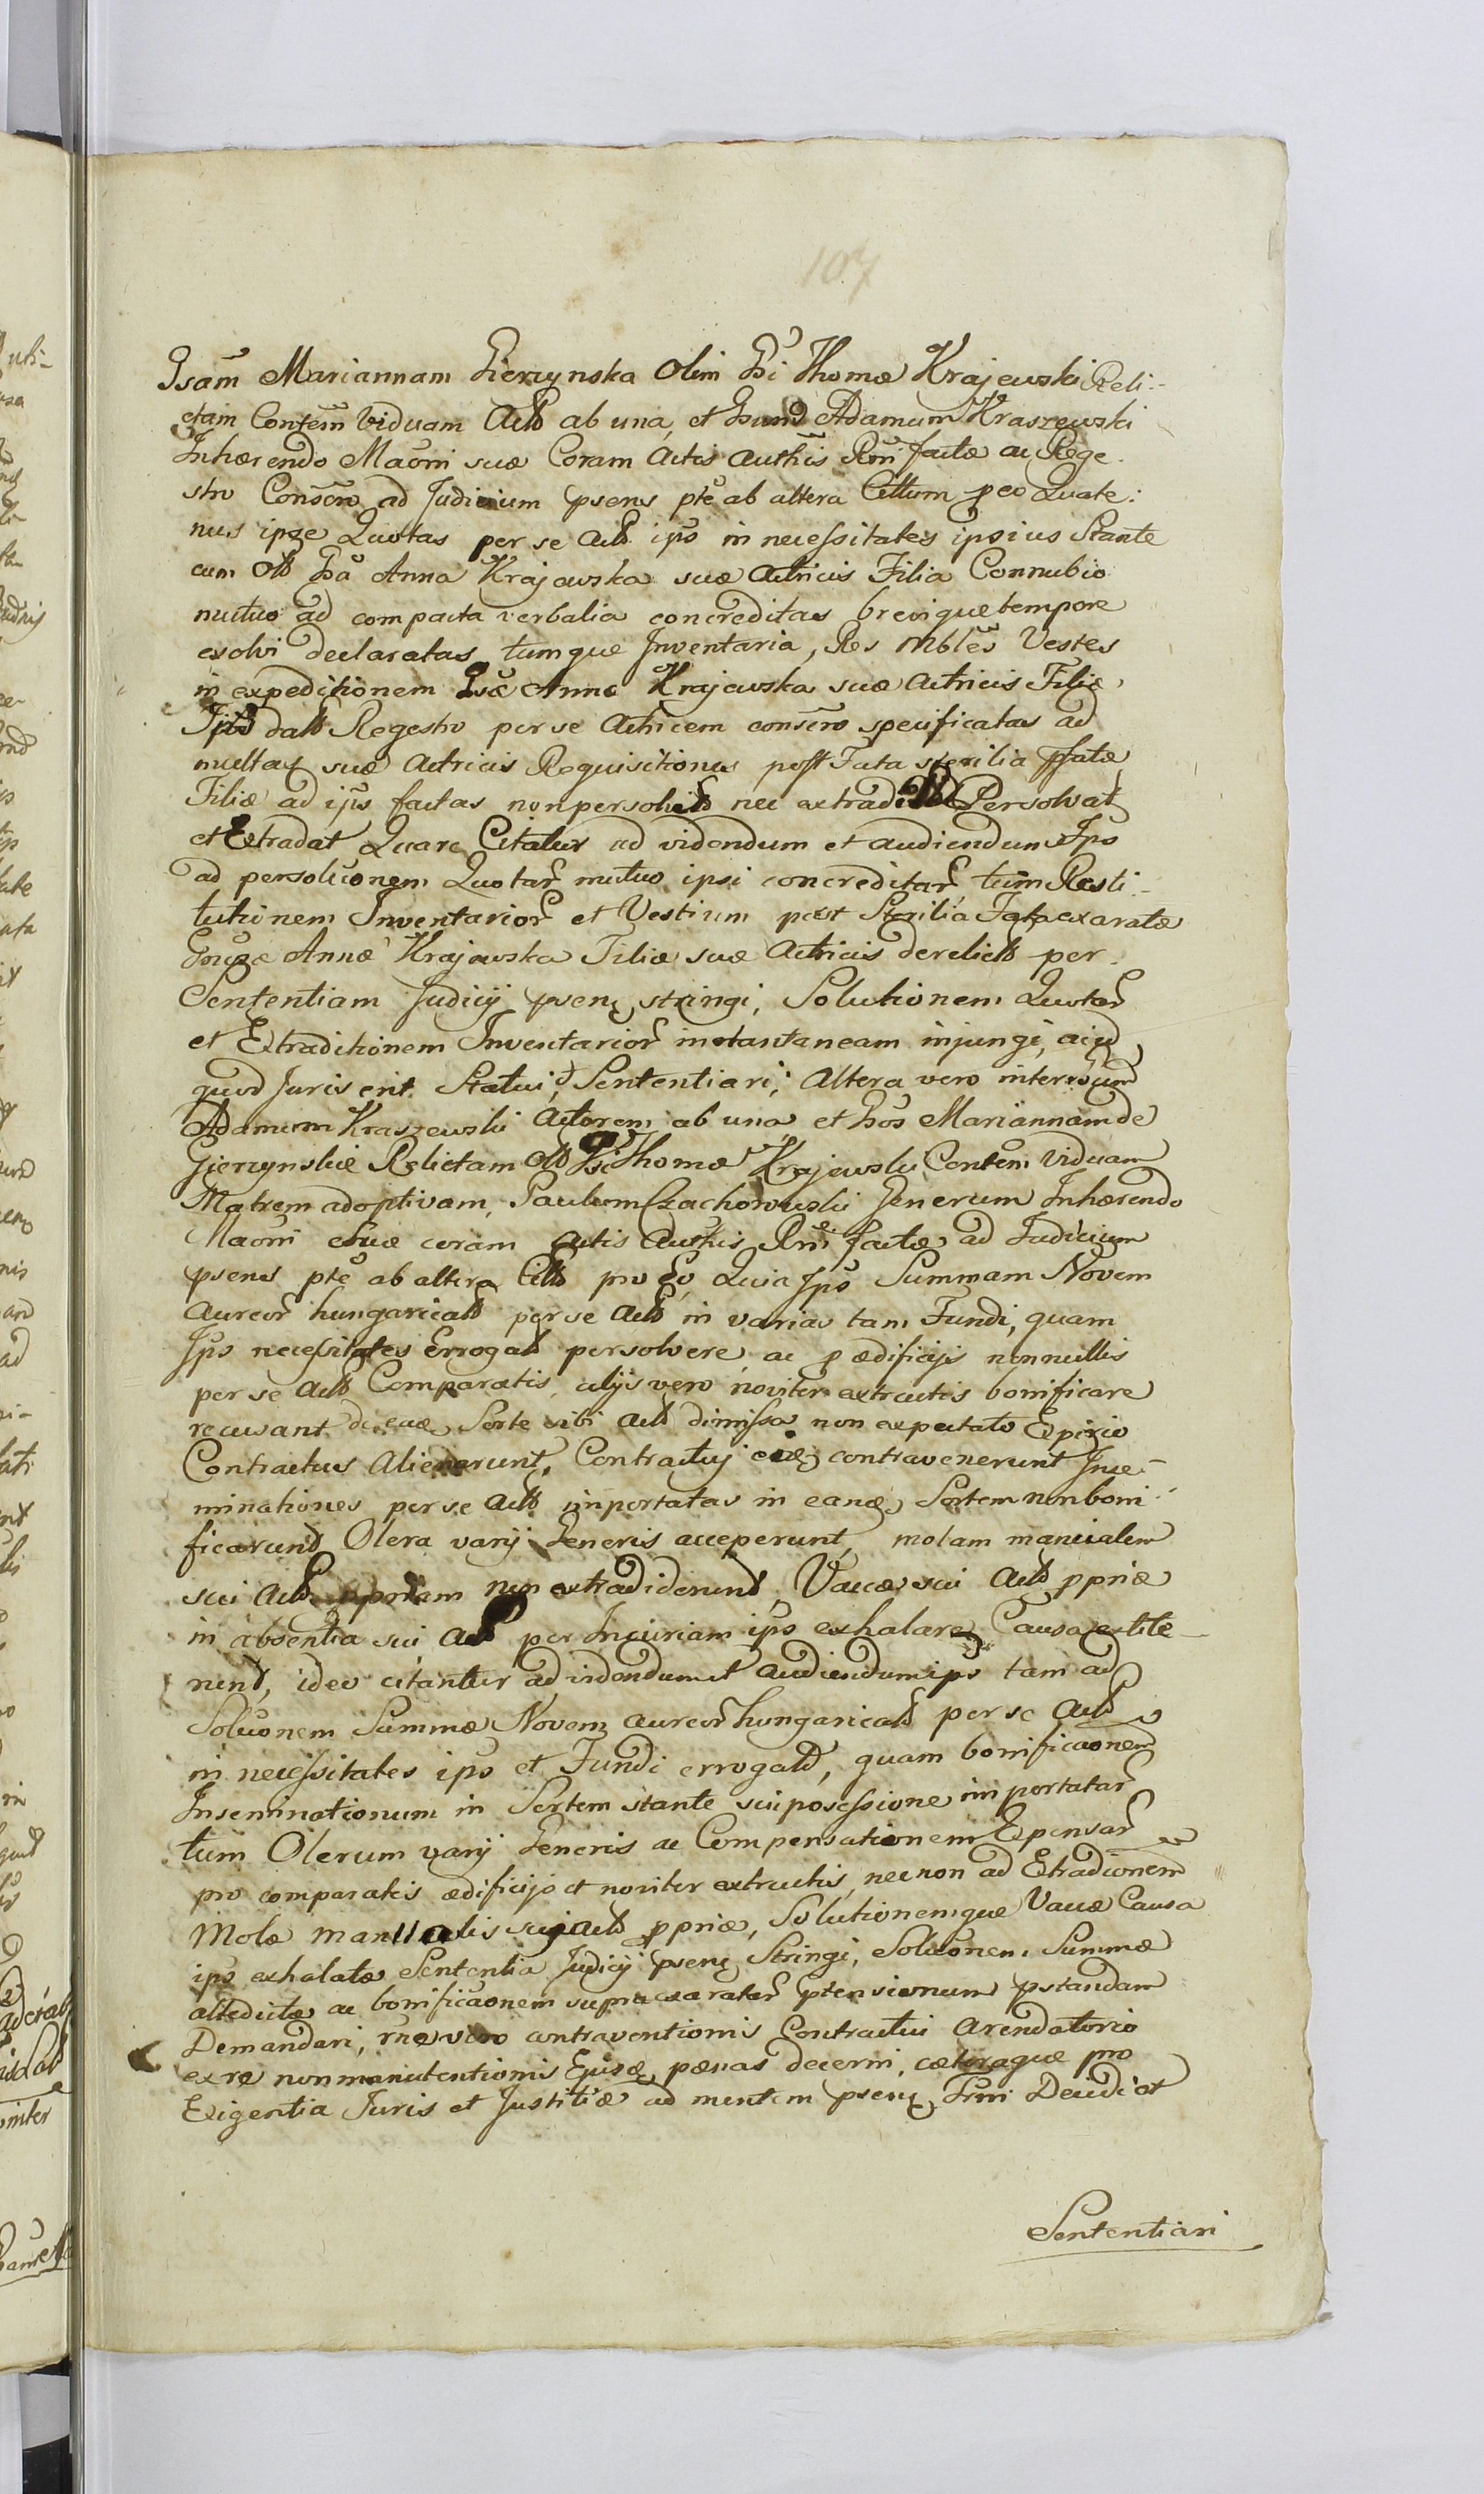 107
Gsam Mariannam Gierzynska Olim Gsi Thomæ Krajewski Reli-
ctam Contem Viduam Acto ab una, et Gsum Adamum Kraszewski
Inhærendo Maoni suæ Coram Actis Authis Rni factæ ac Rege
stro Consero ad Judicium psens pte ab altera Cittum p eo Quate:
nus ipse Quotas per se Acto ips in necessitates ipsius Stante
cum Olto Gsa Anna Krajewska suæ Actricis Filia Connubio
mutuo ad compacta verbalia concreditas brevique tempore
exolvi declaratas tumque Inventaria, Res Mbles Vestes
in expeditionem Gsæ Annæ Krajewska suæ Actricis Filiæ
Ipso dato Regestro per se Actricem consero specificatas ad
multas suæ Actricis Requisitiones post Fata sterilia pfatæ
Filiæ ad ips factas non persolvit nec extradidit Persolvat
et Extradat Quare Citatur ad videndum et audiendum Ips
ad persolvonem Quotar mutuo ipsi concreditar tum Resti-
tutionem Inventarior et Vestium post Sterilia Fata exaratæ
Gnosæ Annæ Krajewska Filiæ suæ Actricis derelict per
Sententiam Judicij psens stringi, Solutionem Quotar
et Extraditionem Inventarior instantaneam injungi, aliud
quod Juris erit Statui, Sententiari; Altera vero inter Gsum
Adamum Kraszewski Actorem ab una et Gsos Mariannam de
Gierzynskie Relictam Olto Gsi Thomæ Krajewski Contem Viduam
Matrem adoptivam, Paulum Czachorowski Generum Inhærendo
Maoni suæ coram Actis Authis Rni factæ ad Judicium
psens pte ab altera Citto pro eo, Quia Ips Summam Novem
Aureor hungarical per se Acto in varias tam Fundi, quam
Ips necessitates Errogato persolvere, ac p ædificijs nonnullis
per se Acto Comparatis, alijs vero noviter extructis bonificare
recusant de eaq Sorte sibi Acto dimissa non expectato Expirio
Contractus Alienarunt, Contractuj eiq contravenerunt Inse-
minationes per se Acto importatas in eanq Sortem non boni-
ficarunt Olera varij Generis acceperunt, molam manualem
sui Acto ppriam non extradiderunt, Vaccæ sui Acto ppriæ
in absentia sui Acto per Incuriam ips exhalare Causa extite
runt, ideo citantur ad videndum et audiendum ips tam ad
Soluonem Summæ Novem aureor hungarical per se Acto
in necessitates ips et Fundi errogato, quam bonificaonem
Inseminationum in Sortem stante sui posessione importatar
tum Olerum varij Generis ac Compensationem Expensar
pro comparatis ædificijs et noviter extructis, necnon ad Extradionem
Molæ manualis suj Acto ppriæ, Solutionemque Vaccæ Causa
ips exhalatæ Sententia Judicij psens Stringi, Soluonem Summæ
altedictæ ac bonificaonem supra exaratar ptensionum pstandam
Demandari, rne vero contraventionis Contractui Arendatorio
ex re non manutentionis Ejusq pænas decerni, cæteraque pro
Exigentia Juris et Justitiæ ad mentem psens Trni Decidi et
Sententiari